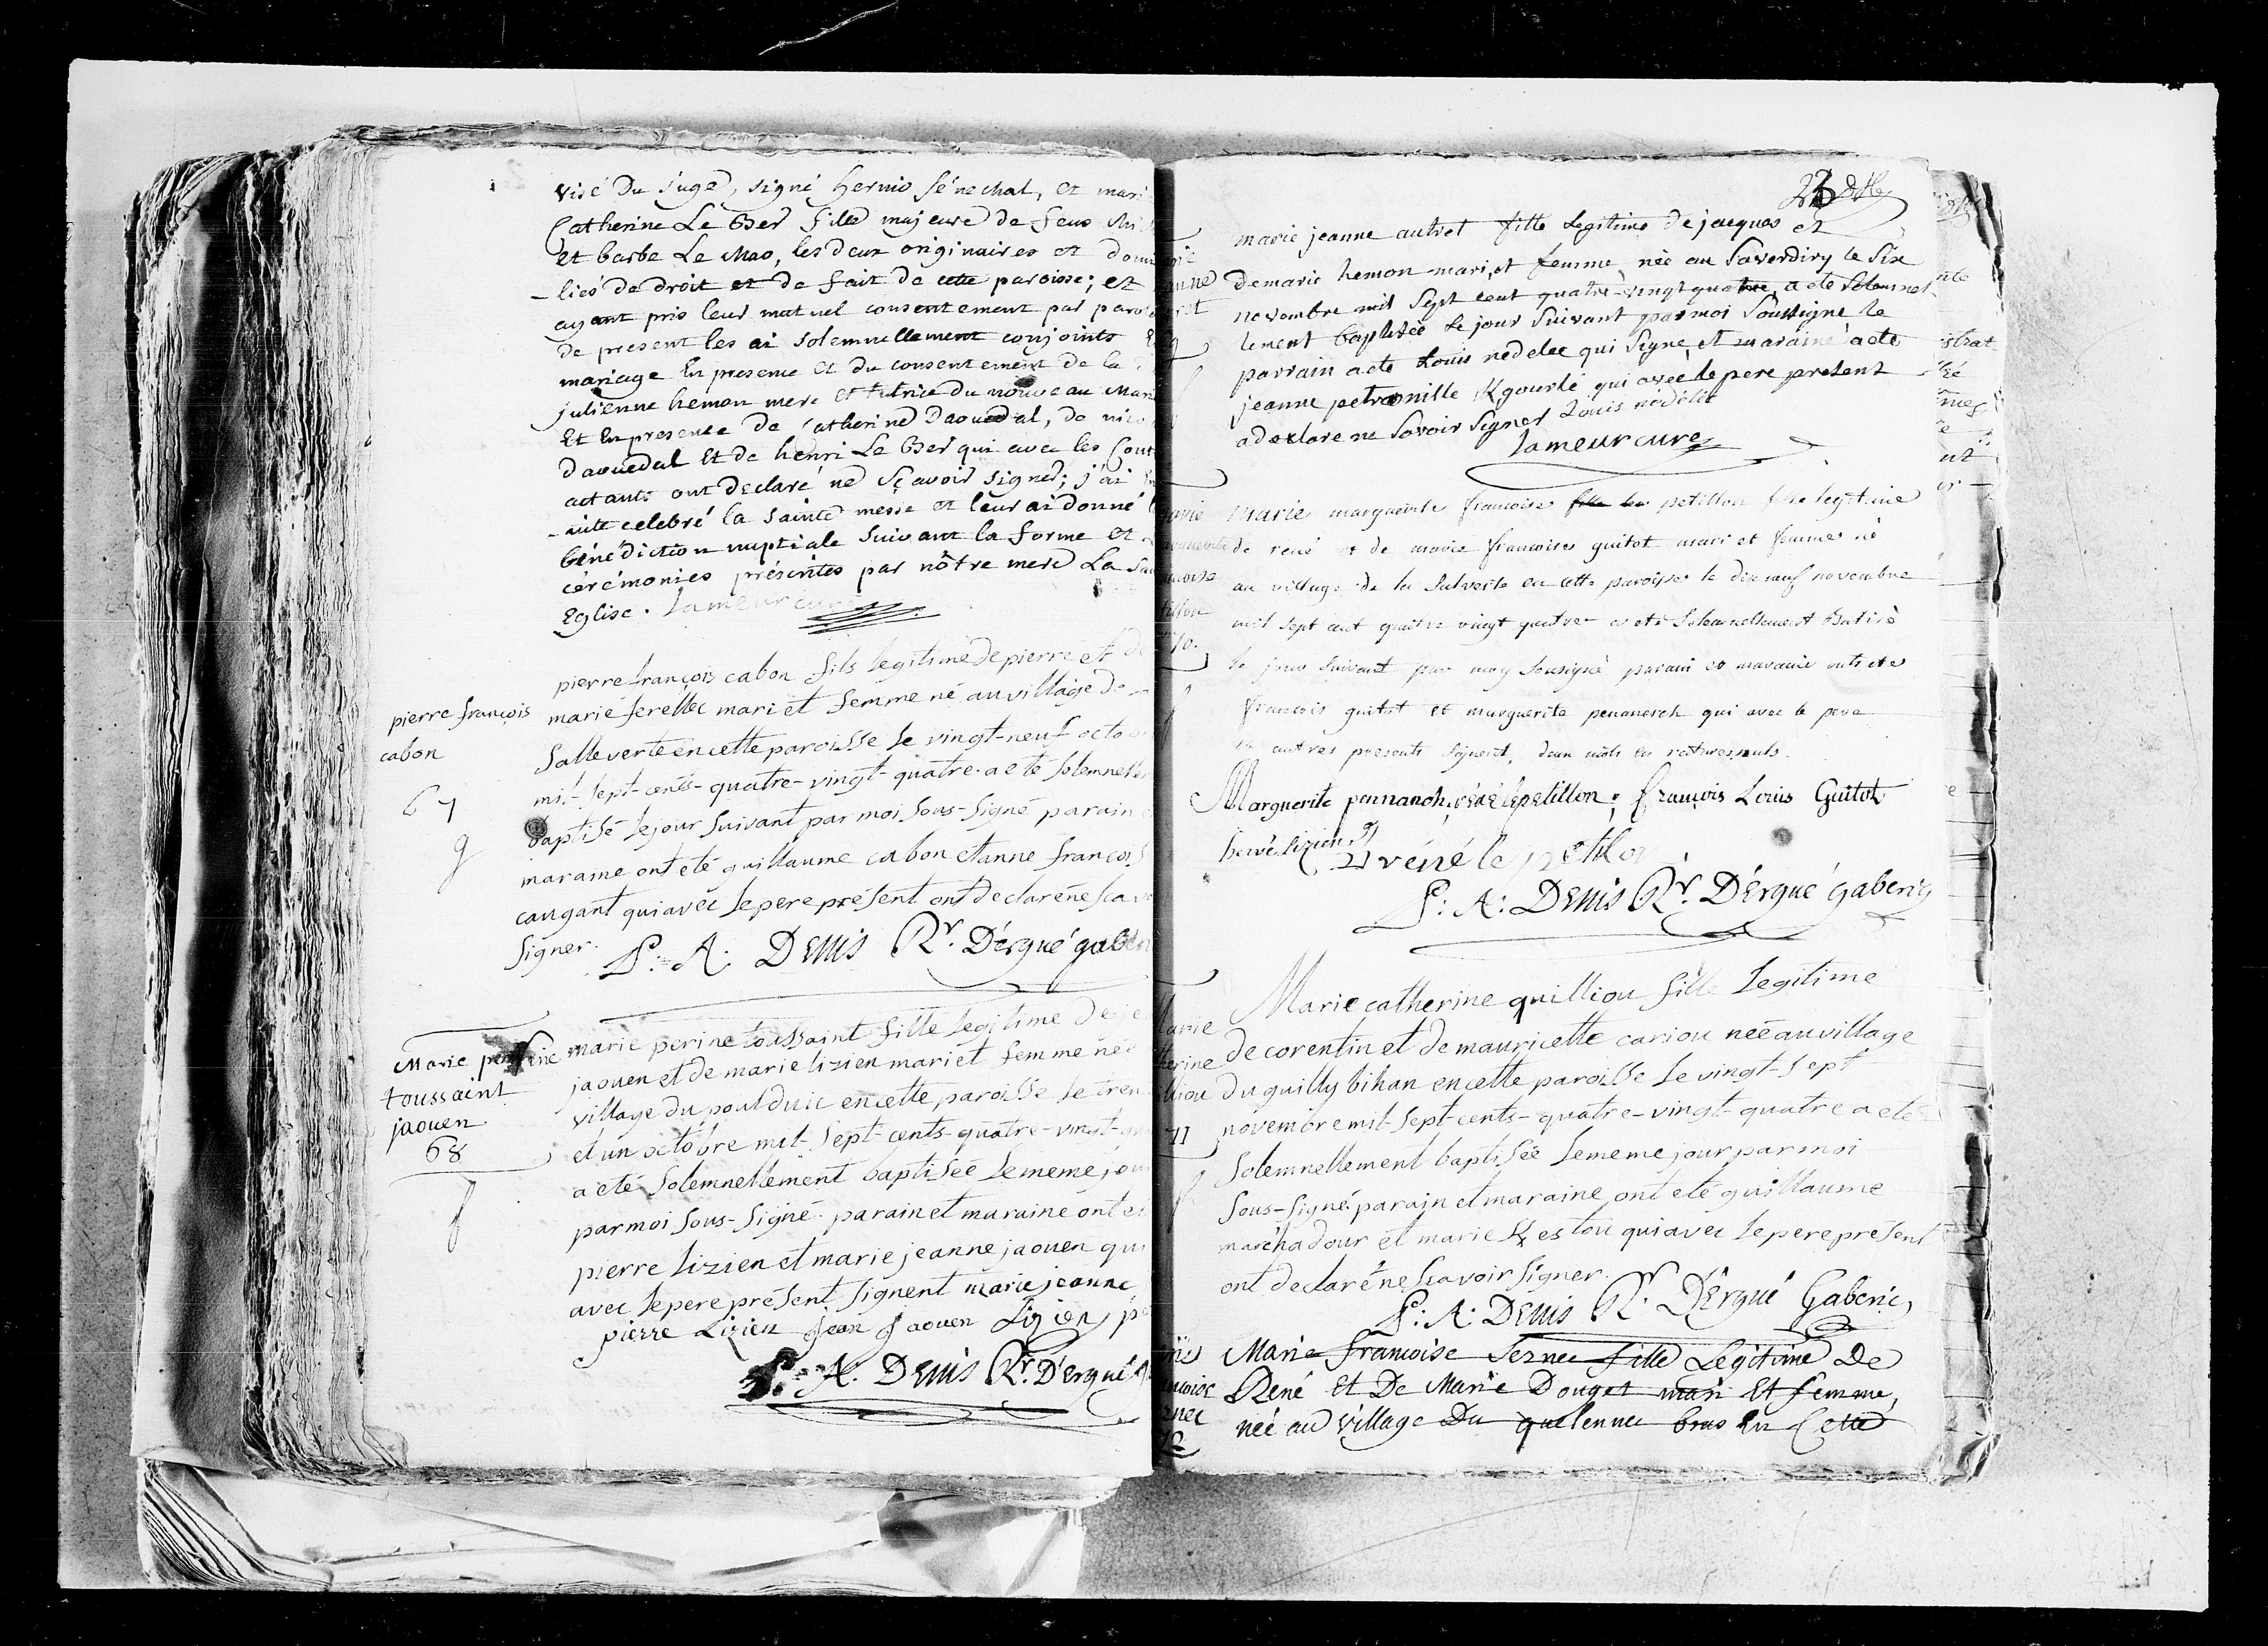 visé Du juge, signé hernio sénechal, et mari
Catherine Le Ber fille majeure de feus
et barbe Le Mao, les deux originaires et domi
-liés de droit et de fait de cette paroisse; et
ayant pris leur mutuel consentement par paro
de present les ai solemnellement conjoints
mariage En presence et du consentement de la
julienne hemon mere et tutrice du nouveau mari
Et En presence de Catherine Daouedal, de nico
daouedal Et de henri Le Ber qui avec les Cont
actants ont declaré ne sçavoir signer; j'ai En
-uite celebré la sainte messe et leur ai donné
bénédiction nuptiale suivant la forme et
cérémonies présentés par nôtre mere La Sai
Eglise. Lameur curé
pierre françois
cabon
67
g
pierre françois cabon fils legitime de pierre et de
marie ferellec mari et femme né au village de
Salleverte en cette paroisse le vingt-neuf octo
mil-sept-cents-quatre-vingt-quatre. a eté solemnelle
baptisé le jour suivant par moi sous-signé parain
maraine ont eté guillaume cabon et anne françois
caugant qui avec le pere présent ont declaré ne sca
signer.
L: A: DEnis Rr. D'ergué gab
Marie perine
toussaint
jaouen
68
f
marie perine toussaint fille legitime de je
jaouen et de marie lizien mari et femme née
village du poulduic en cette paroisse le tren
et un octobre mil-sept-cents-quatre-vingt-
a eté solemnellement baptisée le meme jou
par moi sous-signé. parain et maraine ont et
pierre lizien et marie jeanne jaouen qui
avec le pere présent signent marie jeanne
pierre Lizien jean jaouen Lizien
L: A: DEnis Rr. D'Ergué
marie jeanne autret fille Legitime de jacques et
de marie hemon mari, et femme, née au Saverdiry le six
novembre mil sept cent quatre-vingt quatre, a eté solemnel
lement baptisée le jour suivant par moi soussigné le
parrain a eté Louis nedelec qui signe, et maraine a eté
jeanne petronille Kgourlé qui avec le pere present
a declaré ne savoir signer Louis nédélec
Lameur curé
Marie marguerite francoise petillon fille legitime
de rené et de marie francoise guitot mari et femme né
au village de la salverte en cette paroisse le dix neuf novembre
mil sept cent quatre vingt quatre a eté solemnellement Batisé
le jour suivant par moy sousigné parain et maraine ont eté
françois guitot et marguerite penanech qui avec le pere
et autres presents signent,
Marguerite pennanch, rené lepetillon, françois Louis Guitot
hervé lizien
réné le petillon
L: A: DEnis Rr. D'Ergué gaberic
Marie catherine quilliou fille Legitime
de corentin et de mauricette cariou née au village
du guilly bihan en cette paroisse le vingt-sept
novembre mil-sept-cents-quatre-vingt-quatre a eté
solemnellement baptisée le meme jour par moi
sous-signé. parain et maraine ont eté guillaume
marchadour et marie Kestou qui avec le pere présent
ont declaré ne scavoir signer.
L: A: DEnis Rr. D'Ergué Gaberic
Marie francoise Sernec fille Legitime De
René Et De Marie Douget mari Et femme,
née au village Du quelennec bras En Cette